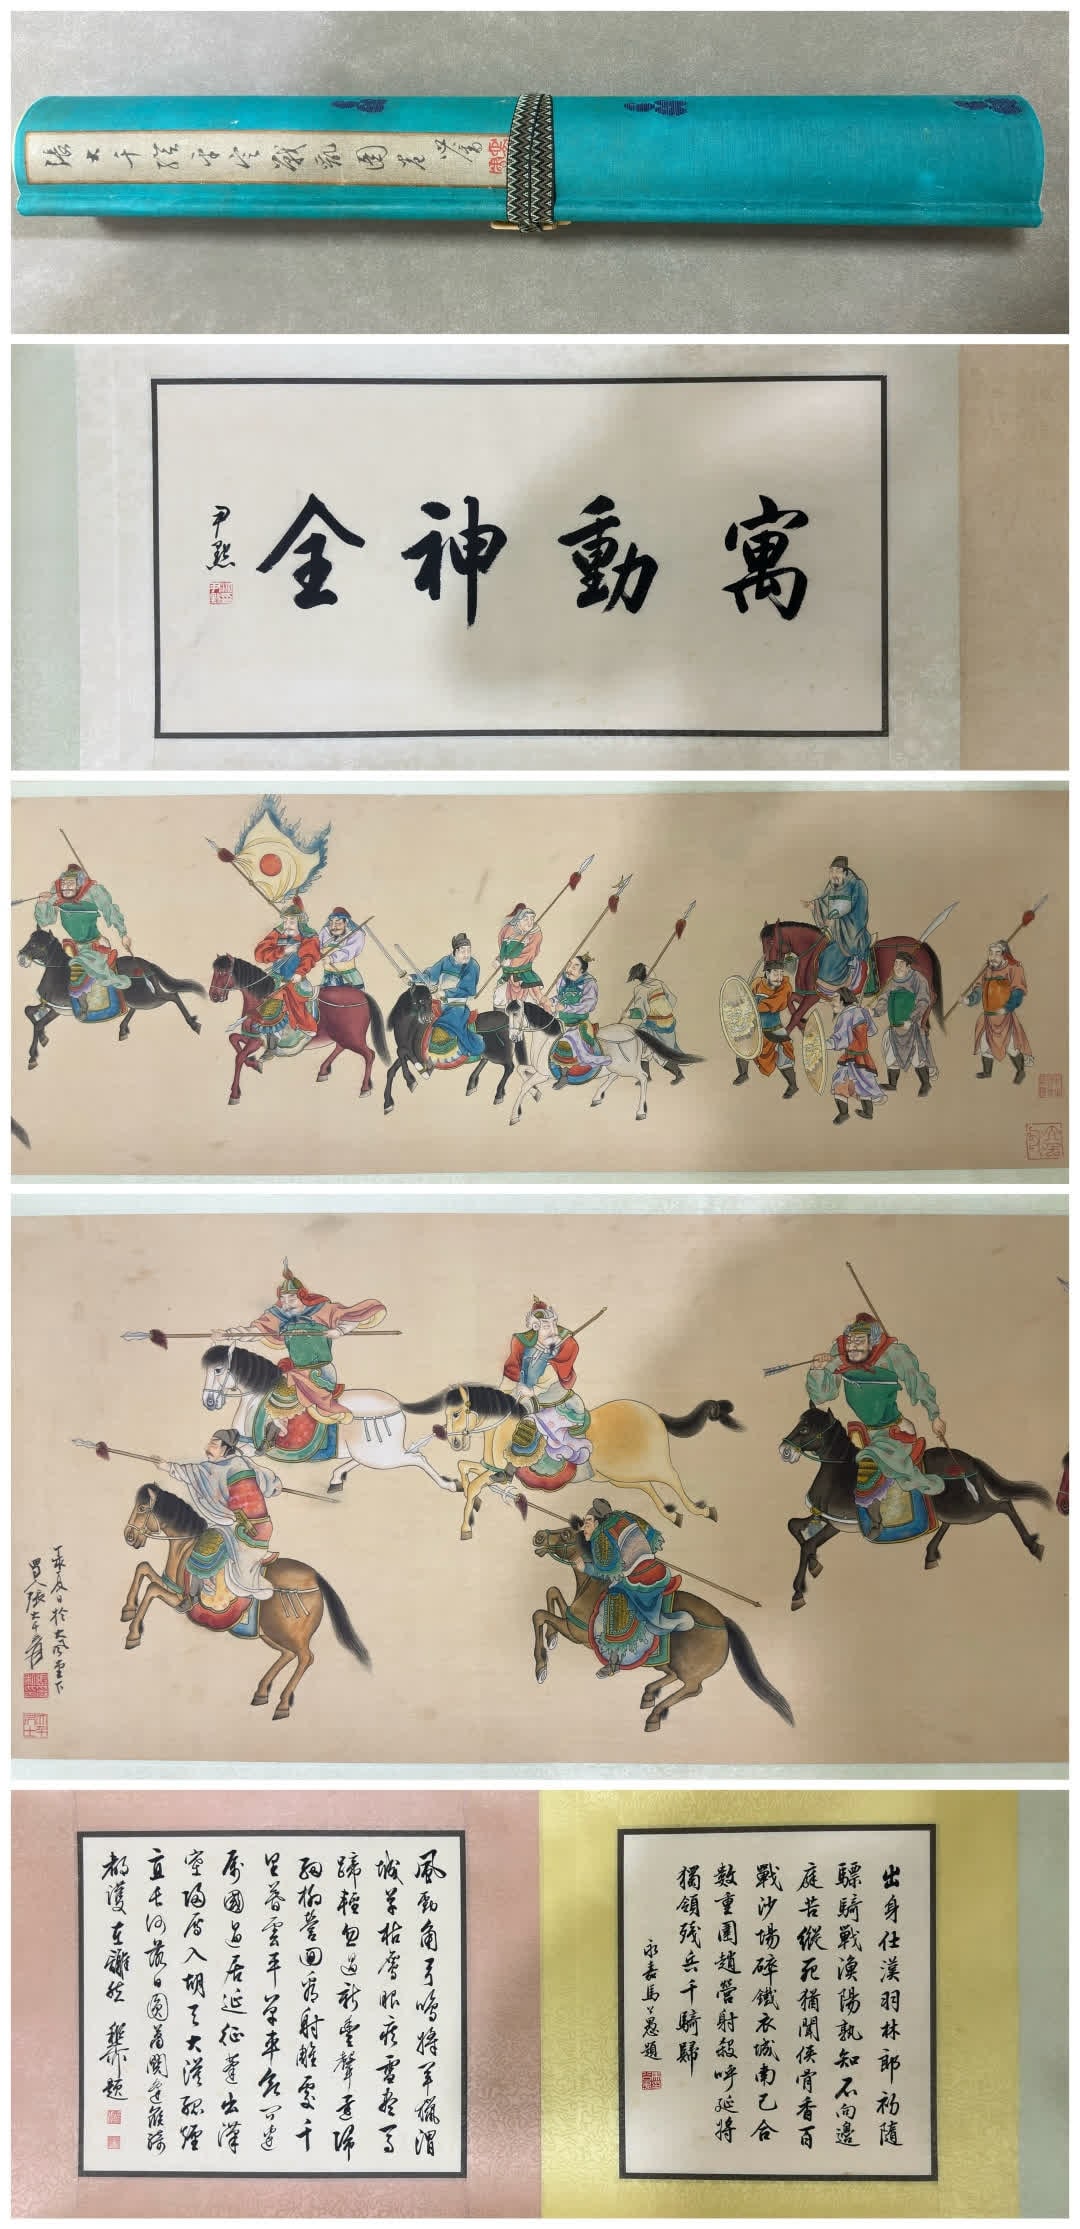 張大千繪平定戰亂圖卷 心畬
寓動神全
尹默
丁亥夏日於大風堂下
蜀人張大千爰
出身仕漢羽林郎初隨
驃騎戰漁陽孰知不向邊
庭苦縱死猶聞俠骨香百
戰沙場碎鐵衣城南已合
數重圍趙營射殺呼延將
獨領殘兵千騎歸
永嘉馬公愚題
風勁角弓鳴將軍獵渭
城草枯鷹眼疾雪盡馬
蹄輕忽過新豐聲還歸
細柳營回看射雕處千
里暮雲平單車欲問邊
屬國過居延征蓬出漢
塞歸雁入胡天大漠孤煙
直長河落日圓蕭關逢候騎
都護在燕然 稚柳題